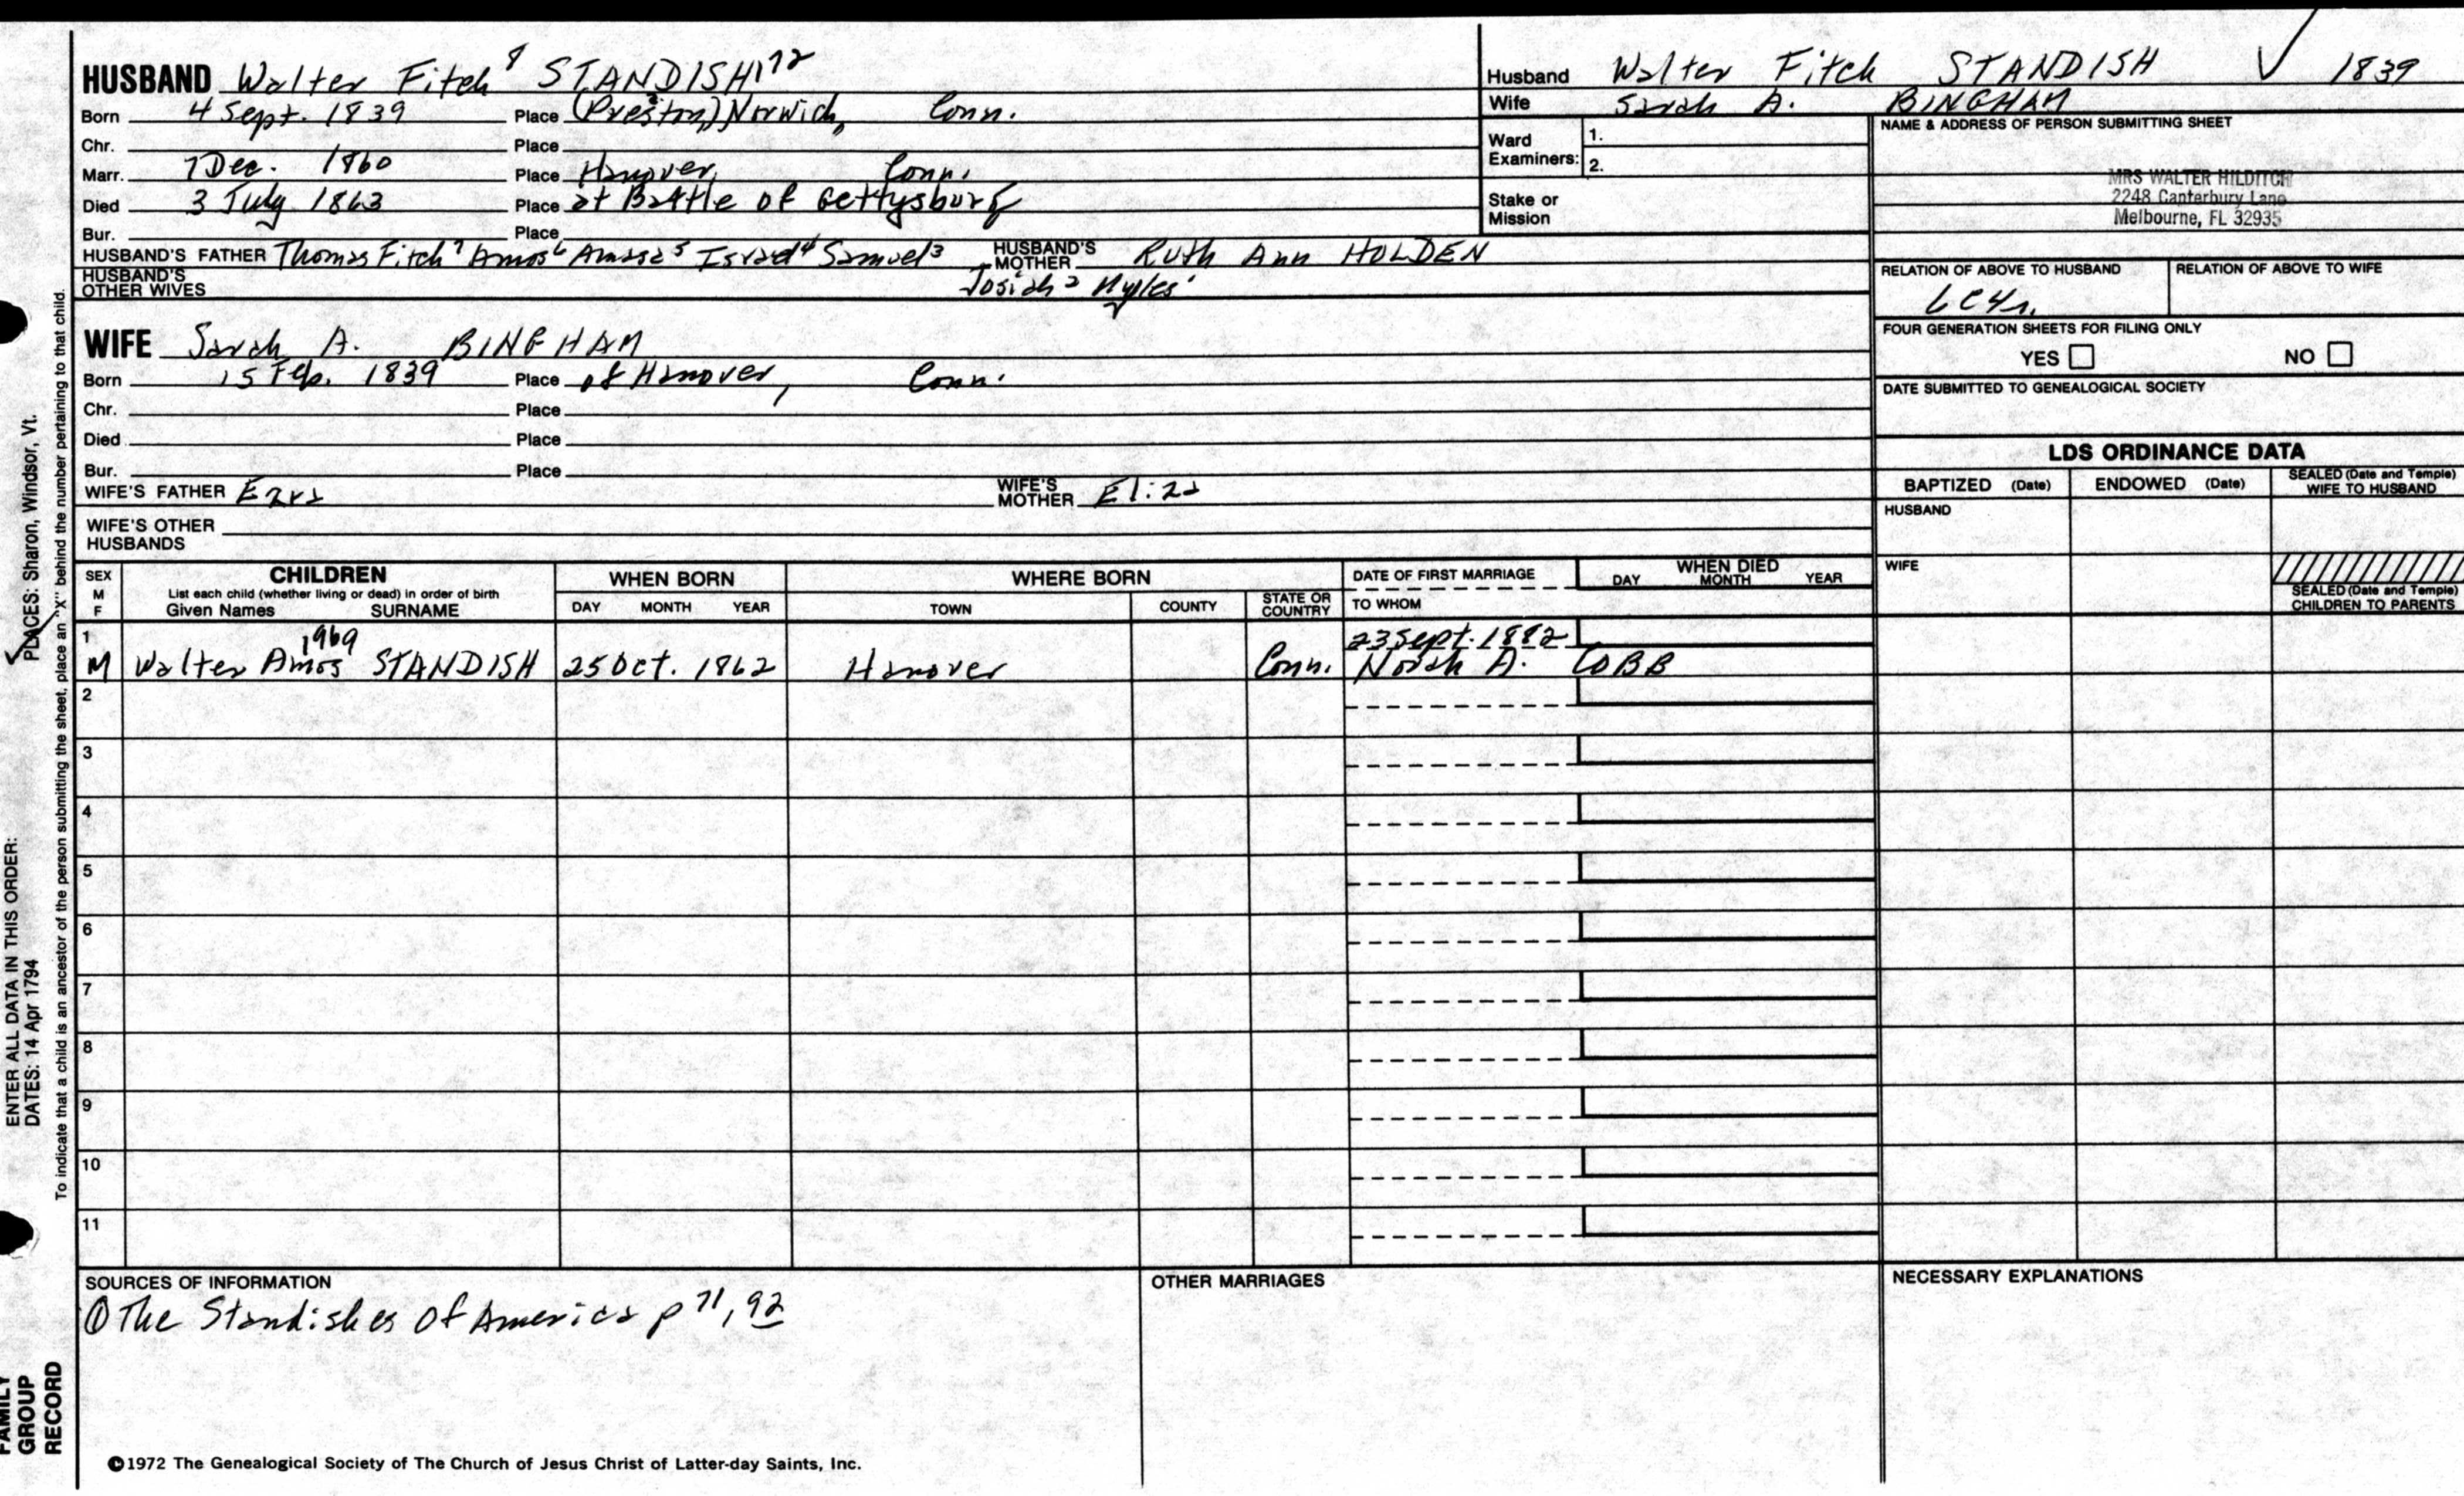 HUSBAND Walter Fitch 8 STANDISH 1172
Born 4 Sept. 1839 Place (Preston?) Norwich, Conn.
Chr. Place
Marr. 7 Dec. 1860 Place Hanover, Conn.
Died 3 July 1863 Place at Battle of Gettysburg
Bur. Place
HUSBAND'S FATHER Thomas Fitch 7 Amos 6 Amasa 5 Israel 4 Samuel 3 HUSBAND'S MOTHER Ruth Ann HOLDEN
HUSBAND'S OTHER WIVES Josiah 2 Myles 1
WIFE Sarah A. BINGHAM
Born 15 Feb. 1839 Place of Hanover, Conn.
Chr. Place
Died Place
Bur. Place
WIFE'S FATHER Ezra WIFE'S MOTHER Eliza
WIFE'S OTHER HUSBANDS
Husband Walter Fitch STANDISH ✓ 1839
Wife Sarah A. BINGHAM
Ward Examiners: 1.
2.
Stake or Mission
NAME & ADDRESS OF PERSON SUBMITTING SHEET
MRS WALTER HILDITCH
2248 Canterbury Lane
Melbourne, FL 32935
RELATION OF ABOVE TO HUSBAND RELATION OF ABOVE TO WIFE
FOUR GENERATION SHEETS FOR FILING ONLY
YES NO
DATE SUBMITTED TO GENEALOGICAL SOCIETY
LDS ORDINANCE DATA
BAPTIZED (Date) ENDOWED (Date) SEALED (Date and Temple) WIFE TO HUSBAND
HUSBAND
WIFE
SEALED (Date and Temple) CHILDREN TO PARENTS
SEX M F
CHILDREN
List each child (whether living or dead) in order of birth
Given Names SURNAME
WHEN BORN
DAY MONTH YEAR
WHERE BORN
TOWN COUNTY STATE OR COUNTRY
DATE OF FIRST MARRIAGE
TO WHOM
WHEN DIED
DAY MONTH YEAR
1 1969 23 Sept. 1882
M Walter Amos STANDISH 25 Oct. 1862 Hanover Conn. Norah A. COBB
2
3
4
5
6
7
8
9
10
11
SOURCES OF INFORMATION
① The Standishes of America p 71, 92
OTHER MARRIAGES
NECESSARY EXPLANATIONS
©1972 The Genealogical Society of The Church of Jesus Christ of Latter-day Saints, Inc.
ENTER ALL DATA IN THIS ORDER:
DATES: 14 Apr 1794 PLACES: Sharon, Windsor, Vt.
To indicate that a child is an ancestor of the person submitting the sheet, place an "X" behind the number pertaining to that child.
FAMILY
GROUP
RECORD